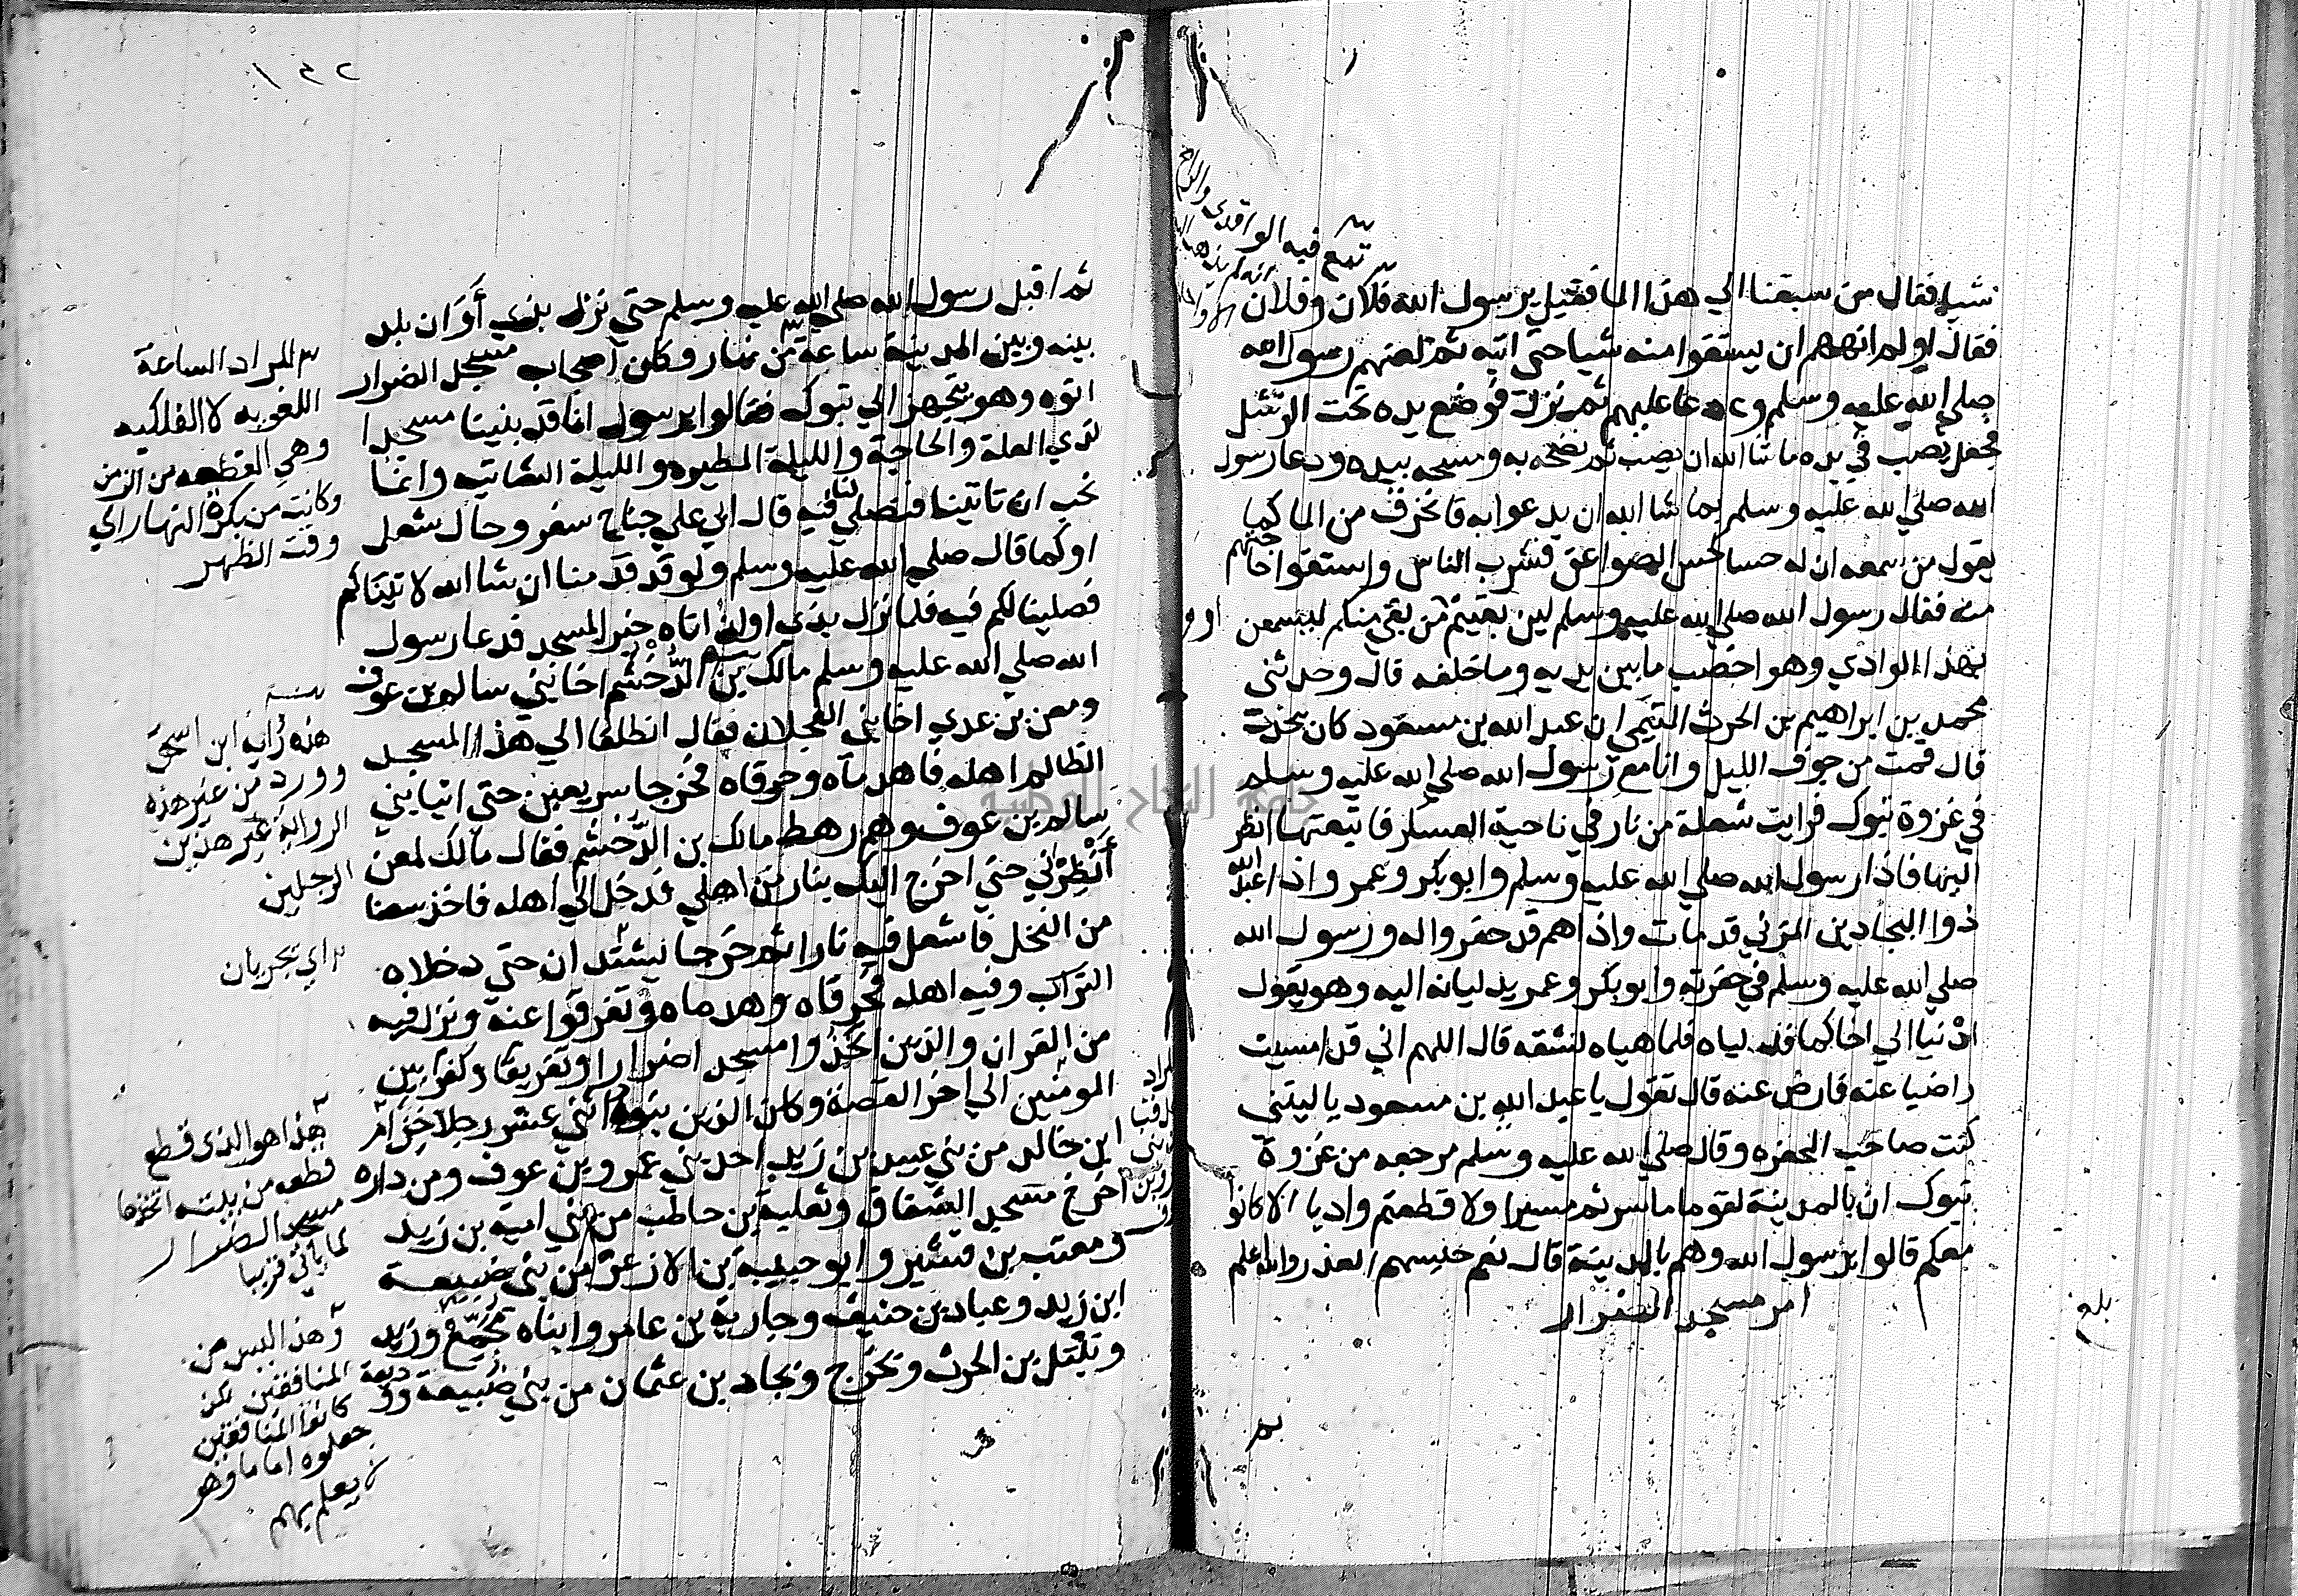 تبع فيه الواقدي
شيا فقال من سبقنا الي هذا الما فقيل يرسول الله فلان وفلان
فقال او لم انههم ان يستقوا منه شيا حتي اتيه ثم لعنهم رسول الله
صلي الله عليه وسلم ودعا عليهم ثم نزل فوضع يده تحت الوشل
فجعل يصب في يده ما شا الله ان يصب ثم نضحه به ومسحه بيده ودعا رسول
الله صلي الله عليه وسلم بما شا الله ان يدعوا به فانخرق من الما كما
يقول من سمعه ان له حسا كحس الصواعق فشرب الناس واستقوا حاجتهم
منه فقال رسول الله صلي الله عليه وسلم لين بقيتم او من بقي منكم ليسمعن
بهذا الوادي وهو اخصب ما بين يديه وما خلفه قال وحدثني
محمد بن ابراهيم بن الحرث التيمي ان عبد الله بن مسعود كان يحدث
قال قمت من جوف الليل وانا مع رسول الله صلي الله عليه وسلم
في غزوة تبوك فرايت شعلة من نار في ناحية العسكر فاتبعتها انظر
اليها فاذا رسول الله صلي الله عليه وسلم وابو بكر وعمر واذا عبد الله
ذوا البجادين المزني قد مات واذا هم قد حفروا له ورسول الله
صلي الله عليه وسلم في حفرته وابو بكر وعمر يدليانه اليه وهو يقول
ادنيا الي اخاكما فدلياه فلما هياه لشقه قال اللهم اني قد امسيت
راضيا عنه فارض عنه قال تقول يا عبد الله بن مسعود يا ليتني
كنت صاحب الحفره وقال صلي الله عليه وسلم مرجعه من غزوة
تبوك ان بالمدينة لقوما ما سرتم مسيرا ولا قطعتم واديا الا كانوا
معكم قالوا يرسول الله وهم بالمدينة قال نعم حبسهم العذر والله اعلم
امر مسجد الضرار
بلغ
١٤٢
ثم اقبل رسول الله صلي الله عليه وسلم حتي نزل بذي أوان بلد
بينه وبين المدينة ساعة من نهار وكان اصحاب مسجد الضرار
اتوه وهو يتجهز الي تبوك فقالوا يرسول انا قد بنينا مسجدا
لذي العلة والحاجة والليلة المطيره والليلة الشاتيه وانما
نحب ان تاتينا فتصلي لنا فيه قال اني علي جناح سفر وحال شغل
او كما قال صلي الله عليه وسلم ولو قد قدمنا ان شا الله لاتيناكم
فصلينا لكم فيه فلما نزل بذي اوان اتاه خبر المسجد فدعا رسول
الله صلي الله عليه وسلم مالك بن الدخشم اخا بني سالم بن عوف
ومعن بن عدي اخا بني العجلان فقال انطلقا الي هذا المسجد
الظالم اهله فاهدماه وحرقاه فخرجا سريعين حتي اتيا بني
سالم بن عوف وهم رهط مالك بن الدخشم فقال مالك لمعن
أنظرني حتي اخرج اليك بنار من اهلي فدخل الي اهله فاخذ سعفا
من النخل فاشعل فيه نارا ثم خرجا يشتدان حتي دخلاه
التراب وفيه اهله فحرقاه وهدماه وتفرقوا عنه ونزل فيه
من القران والذين اتخذوا مسجدا ضرارا وتفريقا وكفرا بين
المومنين الي اخر القصة وكان الذين بنوه اثني عشر رجلا خذام
ابن خالد من بني عبيد بن زيد احد بني عمرو بن عوف ومن داره
اخرج مسجد الشقاق وثعلبة بن حاطب من بني امية بن زيد
ومعتب بن قشير وابو حبيبة بن الازعر من بني ضبيعة
ابن زيد وعباد بن حنيف وجارية بن عامر وابناه مجمع وزيد
ونبتل بن الحرث وبحزج وبجاد بن عثمان من بني ضبيعة ووديعة
المراد الساعة
اللغويه لا الفلكيه
وهي القطعه من الزمن
وكانت من بكرة النهار الي
وقت الظهر
هذه رواية ابن اسحق
وورد من غير هذه
الرواية غير هذين
الرجلين
اي يجريان
هذا هو الذي قطع
قطعه من بيته اتخذها
مسجد الضرار
كما ياتي قريبا
وهذا ليس من
المنافقين لكن
كانوا المنافقين
جعلوه اماما وهو
لا يعلم بهم
جامعة النجاح الوطنية